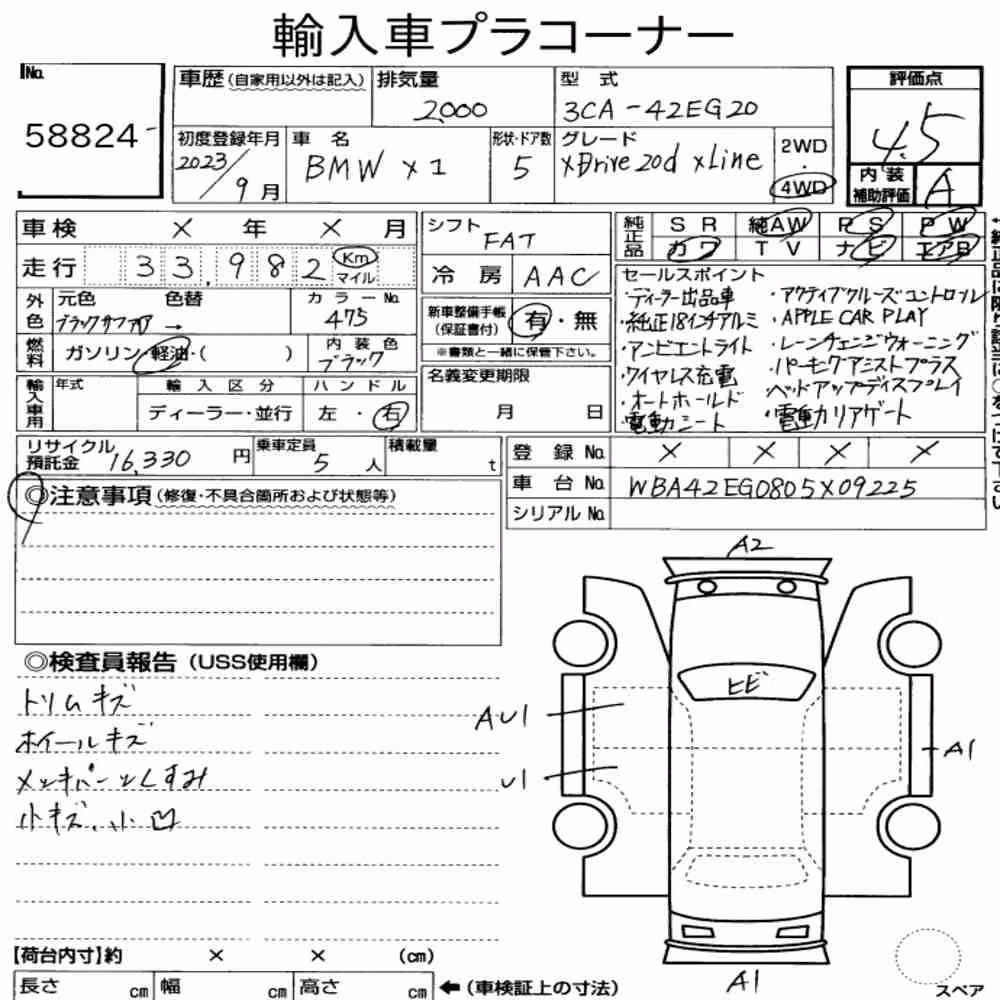 輸入車プラコーナー
No. 58824
車歴(自家用以外は記入) 排気量 2,000 型式 3CA-42EG20
初度登録年月 2023/9月 車名 BMW X1 形状・ドア数 5 グレード xDrive20d xLine 2WD・4WD
評価点 4.5
内装補助評価 A
車検 × 年 × 月
走行 33,982 Km マイル
外色 元色 ブラックサファイア 色替 → カラーNo. 475
燃料 ガソリン・軽油・( ) 内装色 ブラック
輸入車用 年式 輸入区分 ディーラー・並行 ハンドル 左・右
シフト FAT
冷房 AAC
新車整備手帳(保証書付) 有・無
※書類と一緒に保管下さい。
名義変更期限
月 日
純正品 SR 純AW PS PW
カワ TV ナビ エアB
セールスポイント
・ディーラー出品車
・純正18インチアルミ
・アンビエントライト
・ワイヤレス充電
・オートホールド
・電動シート
・アクティブクルーズコントロール
・APPLE CAR PLAY
・レーンチェンジウォーニング
・パーキングアシストプラス
・ヘッドアップディスプレイ
・電動リアゲート
リサイクル預託金 16,330円 乗車定員 5人 積載量 t
登録No. × × × ×
車台No. WBA42EG0805X09225
シリアルNo.
◎注意事項(修復・不具合箇所および状態等)
◎検査員報告(USS使用欄)
トリムキズ
ホイールキズ
メッキパーツくすみ
小キズ、小凹
A2
ヒビ
AU1
U1
A1
A1
【荷台内寸】約 × × (cm)
長さ cm 幅 cm 高さ cm ←(車検証上の寸法)
スペア